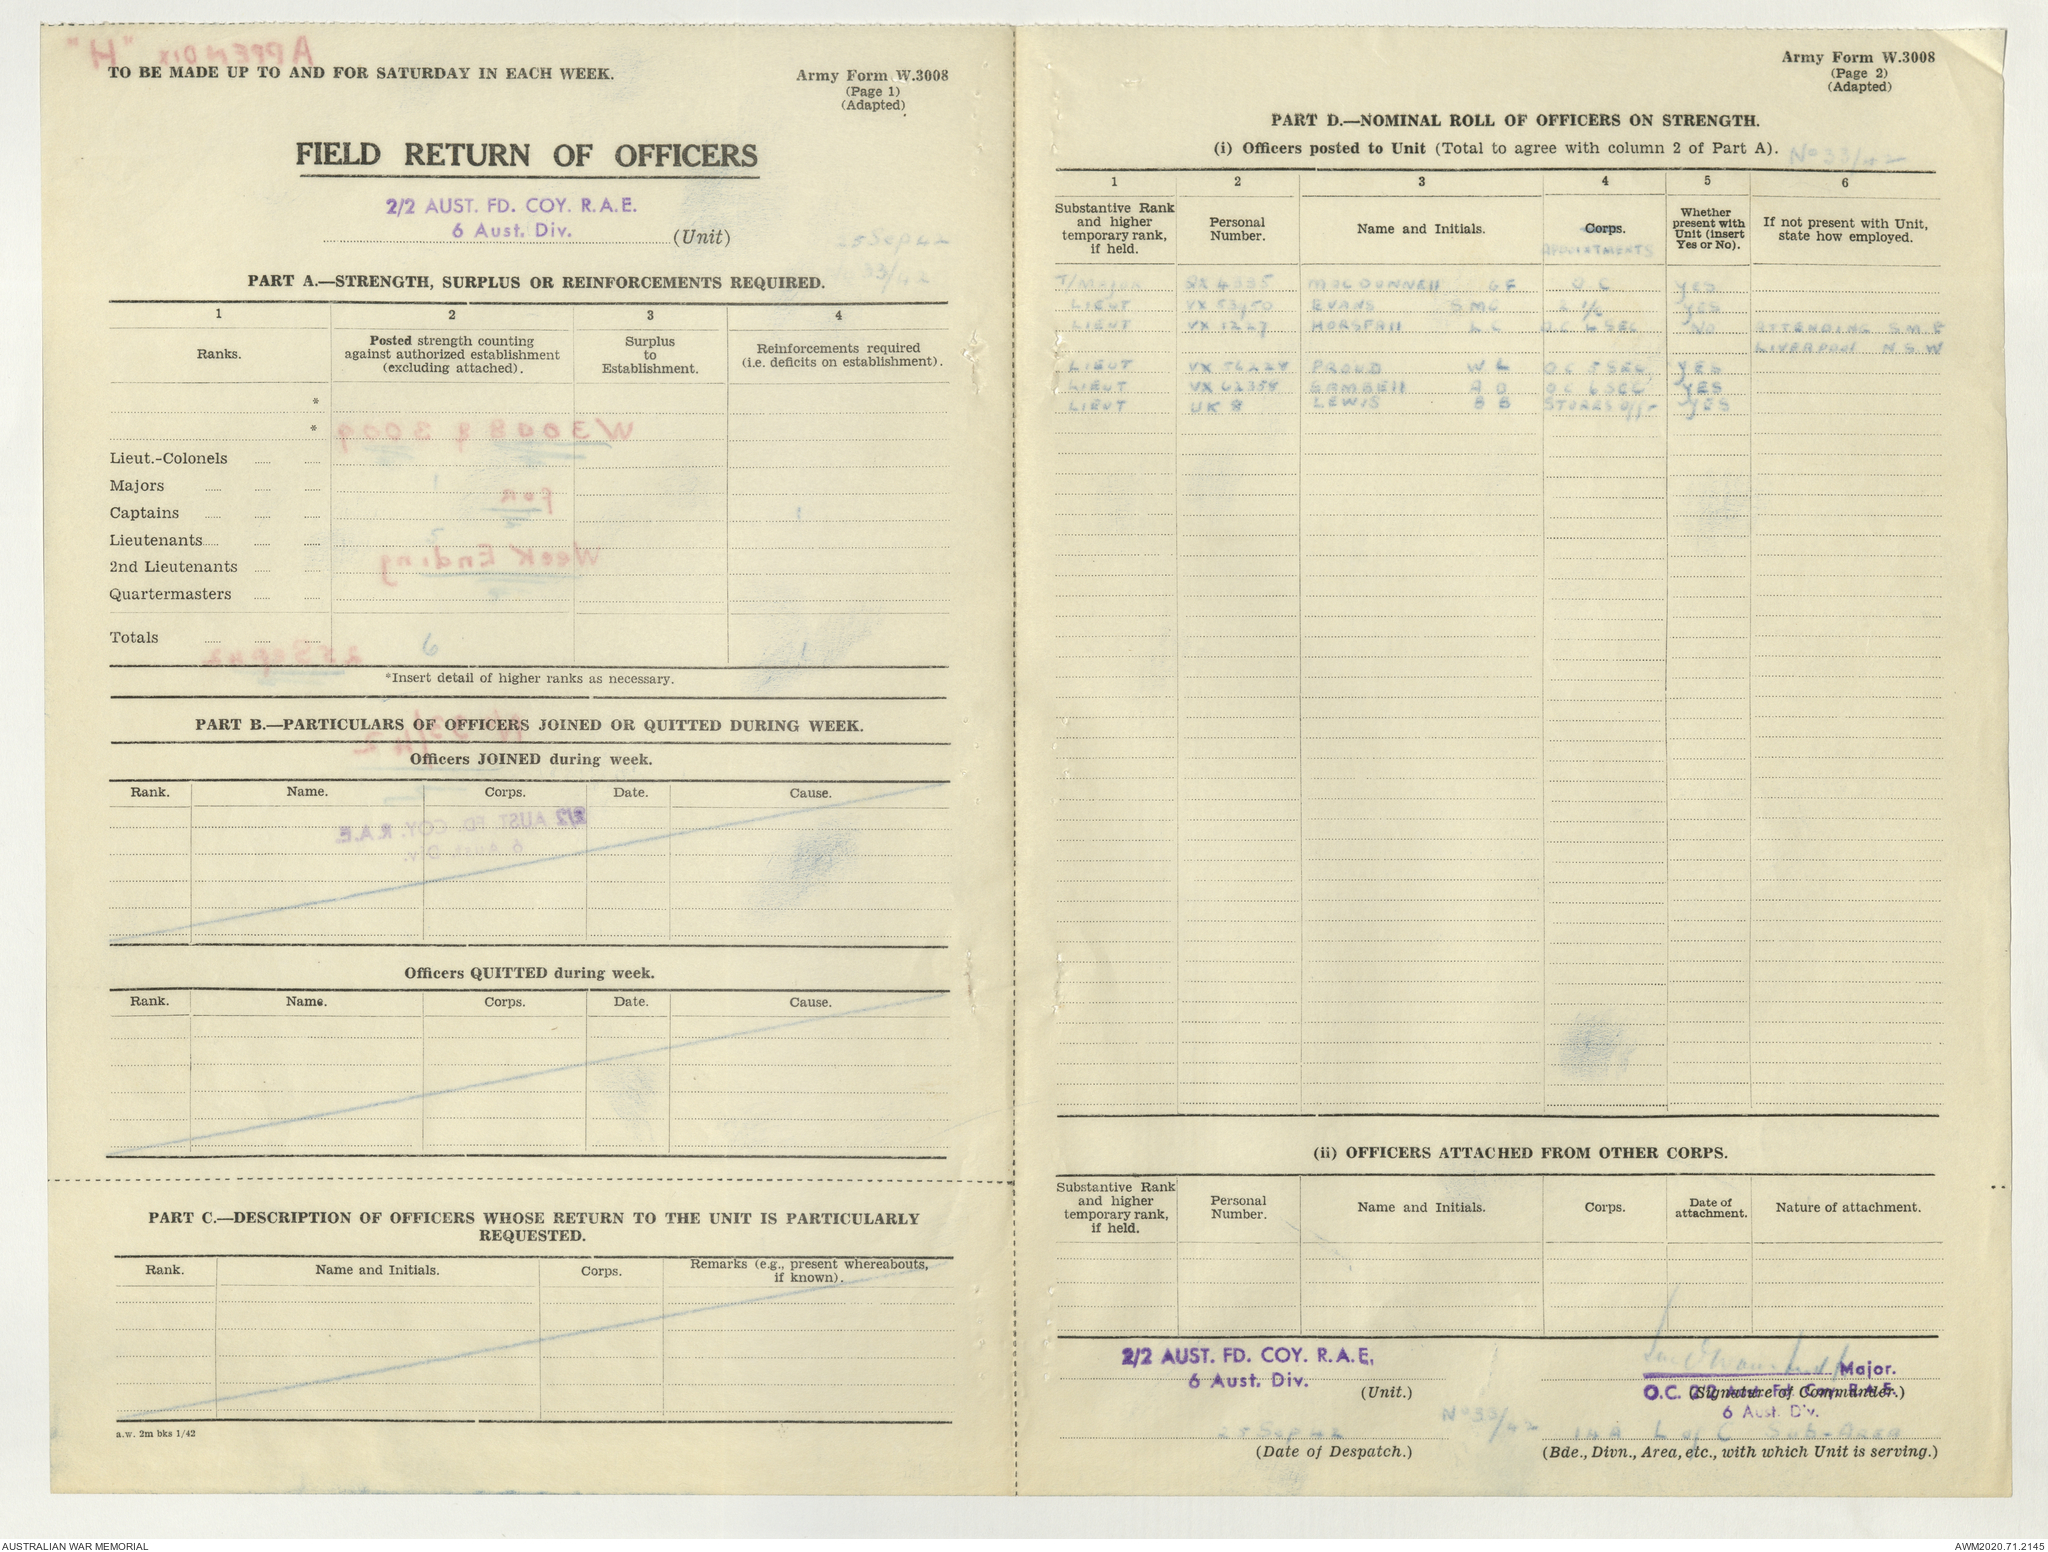 APPENDIX "H"
TO BE MADE UP TO AND FOR SATURDAY IN EACH WEEK.
Army Form W.3008
(Page 1)
(Adapted)
FIELD RETURN OF OFFICERS
2/2 AUST. FD. COY. R.A.E.
6 Aust. Div.
(Unit)
25 Sep 42
33/42
PART A.—STRENGTH, SURPLUS OR REINFORCEMENTS REQUIRED.
1 2 3 4
Ranks. Posted strength counting against authorized establishment (excluding attached). Surplus to Establishment. Reinforcements required (i.e. deficits on establishment).
*
*
W3008 & 3009
Lieut.-Colonels
Majors 1
for
Captains 1
Lieutenants 5
Week Ending
2nd Lieutenants
Quartermasters
Totals 6 1
25 Sep 42
*Insert detail of higher ranks as necessary.
33/42
PART B.—PARTICULARS OF OFFICERS JOINED OR QUITTED DURING WEEK.
Officers JOINED during week.
Rank. Name. Corps. Date. Cause.
2/2 AUST. FD. COY. R.A.E.
6 Aust. Div.
Officers QUITTED during week.
Rank. Name. Corps. Date. Cause.
PART C.—DESCRIPTION OF OFFICERS WHOSE RETURN TO THE UNIT IS PARTICULARLY
REQUESTED.
Rank. Name and Initials. Corps. Remarks (e.g., present whereabouts, if known).
a.w. 2m bks 1/42
Army Form W.3008
(Page 2)
(Adapted)
PART D.—NOMINAL ROLL OF OFFICERS ON STRENGTH.
(i) Officers posted to Unit (Total to agree with column 2 of Part A).
No 33/42
1 2 3 4 5 6
Substantive Rank and higher temporary rank, if held. Personal Number. Name and Initials. Corps. Whether present with Unit (insert Yes or No). If not present with Unit, state how employed.
APPOINTMENTS
T/MAJOR MACDONNELL GF O C YES
LIEUT EVANS SMC 2 I/C YES
LIEUT VX 1227 HORSFALL L C O C 4 SEC NO ATTENDING S M E
LIVERPOOL N S W
LIEUT VX 56224 PROUD W L O C 5 SEC YES
LIEUT VX 62358 GAMBELL A D O C 6 SEC YES
LIEUT UK 8 LEWIS B B STORES OFF YES
(ii) OFFICERS ATTACHED FROM OTHER CORPS.
Substantive Rank and higher temporary rank, if held. Personal Number. Name and Initials. Corps. Date of attachment. Nature of attachment.
2/2 AUST. FD. COY. R.A.E.
6 Aust. Div.
(Unit.)
Major.
O.C. 2/2 Aust. Fd. Coy. R.A.E.
(Signature of Commander.)
6 Aust. Div.
25 Sep 42
No 33/42
14A L of C Sub-Area
(Date of Despatch.)
(Bde., Divn., Area, etc., with which Unit is serving.)
AUSTRALIAN WAR MEMORIAL
AWM2020.71.2145